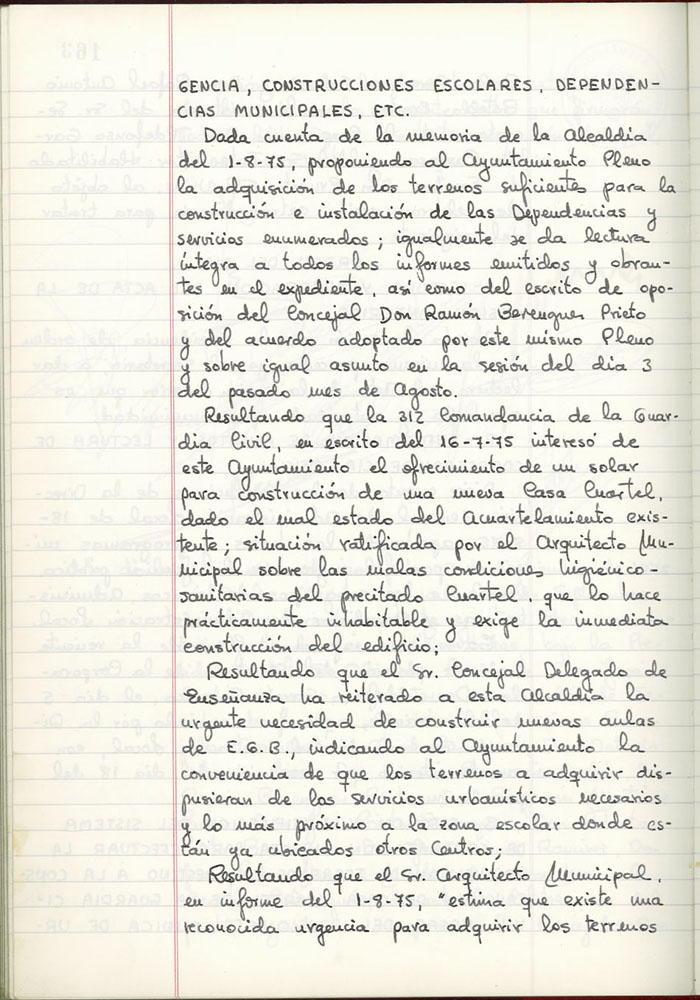 GENCIA, CONSTRUCCIONES ESCOLARES, DEPENDEN-
CIAS MUNICIPALES, ETC.
Dada cuenta de la memoria de la Alcaldía
del 1-8-75, proponiendo al Ayuntamiento Pleno
la adquisición de los terrenos suficientes para la
construcción e instalación de las Dependencias y
servicios enumerados; igualmente se da lectura
íntegra a todos los informes emitidos y obran-
tes en el expediente, así como del escrito de opo-
sición del Concejal Don Ramón Berenguer Prieto
y del acuerdo adoptado por este mismo Pleno
y sobre igual asunto en la sesión del día 3
del pasado mes de Agosto.
Resultando que la 312 Comandancia de la Guar-
dia Civil, en escrito del 16-7-75 interesó de
este Ayuntamiento el ofrecimiento de un solar
para construcción de una nueva Casa Cuartel,
dado el mal estado del Acuartelamiento exis-
tente; situación ratificada por el Arquitecto Mu-
nicipal sobre las malas condiciones higiénico-
sanitarias del precitado Cuartel, que lo hace
prácticamente inhabitable y exige la inmediata
construcción del edificio;
Resultando que el Sr. Concejal Delegado de
Enseñanza ha reiterado a esta Alcaldía la
urgente necesidad de construir nuevas aulas
de E.G.B., indicando al Ayuntamiento la
conveniencia de que los terrenos a adquirir dis-
pusieran de los servicios urbanísticos necesarios
y lo más próximo a la zona escolar donde es-
tán ya ubicados otros Centros;
Resultando que el Sr. Arquitecto Municipal,
en informe del 1-8-75, "estima que existe una
reconocida urgencia para adquirir los terrenos